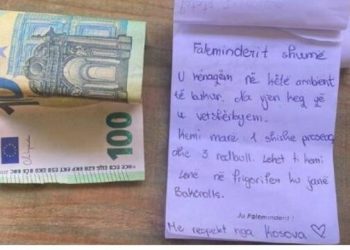 100
Faleminderit shumë
U kënaqëm në këtë ambient
të bukur. Na vjen keq që
u vetshërbyem.
Kemi marë 1 shishe prosecco
dhe 3 redbull. Lehet ti keni
lenë në frigorifen ku janë
Bakërolls.
Ju Faleminderit!
Me respekt nga Kosova ♡